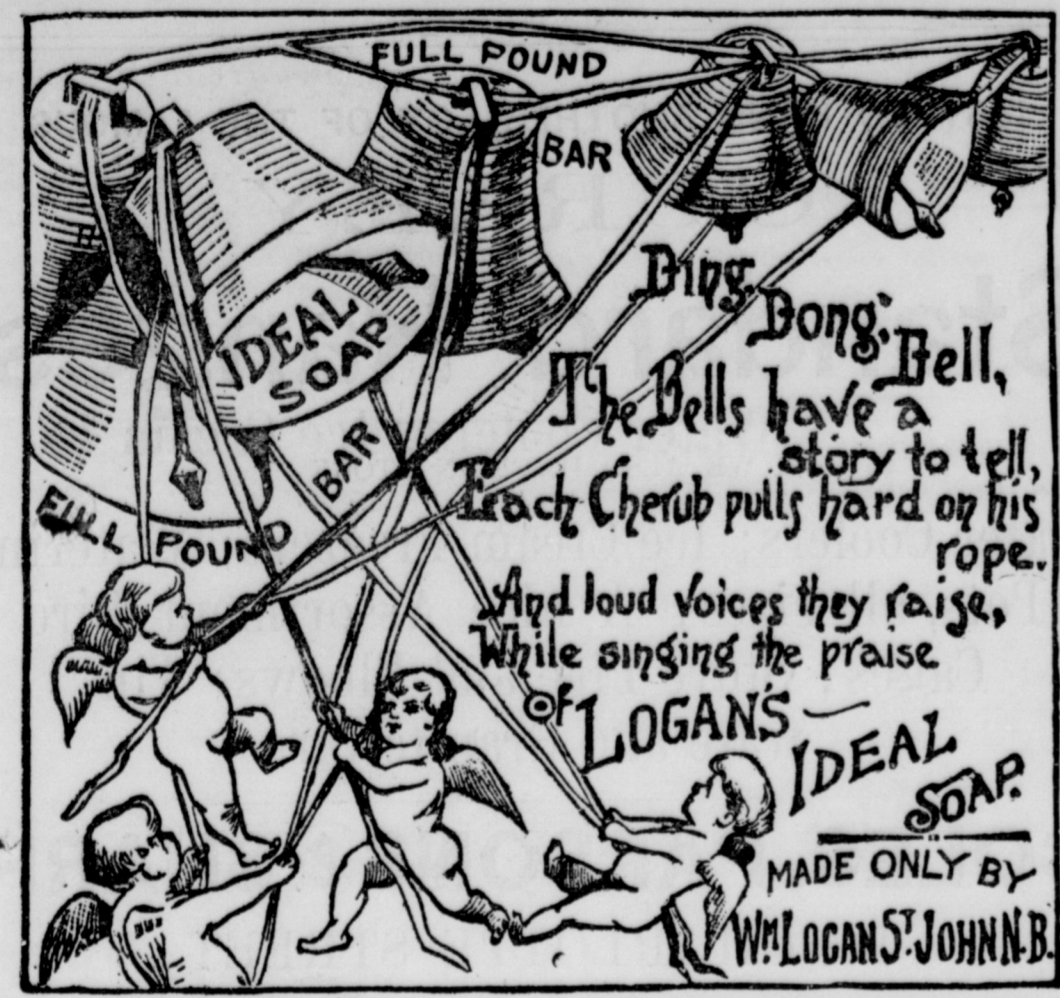 FULL POUND
BAR
IDEAL
SOAP
BAR
FULL POUND
Ding.
Dong.
Bell,
The Bells have a
story to tell,
Each Cherub pulls hard on his
rope.
And loud voices they raise,
While singing the praise
of LOGAN'S
IDEAL
SOAP.
MADE ONLY BY
WM LOGAN ST. JOHN N.B.